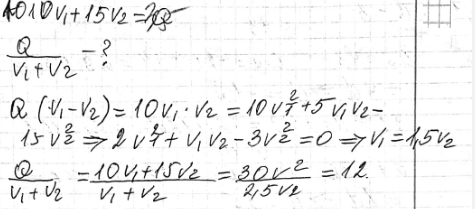 10v₁+15v₂=Q
Q/(v₁+v₂) – ?
Q(v₁–v₂)=10v₁·v₂=10v₁²+5v₁v₂–
15v₂² ⇒ 2v₁²+v₁v₂–3v₂²=0 ⇒ v₁=1,5v₂
Q/(v₁+v₂) = (10v₁+15v₂)/(v₁+v₂) = 30v²/2,5v₂ = 12.